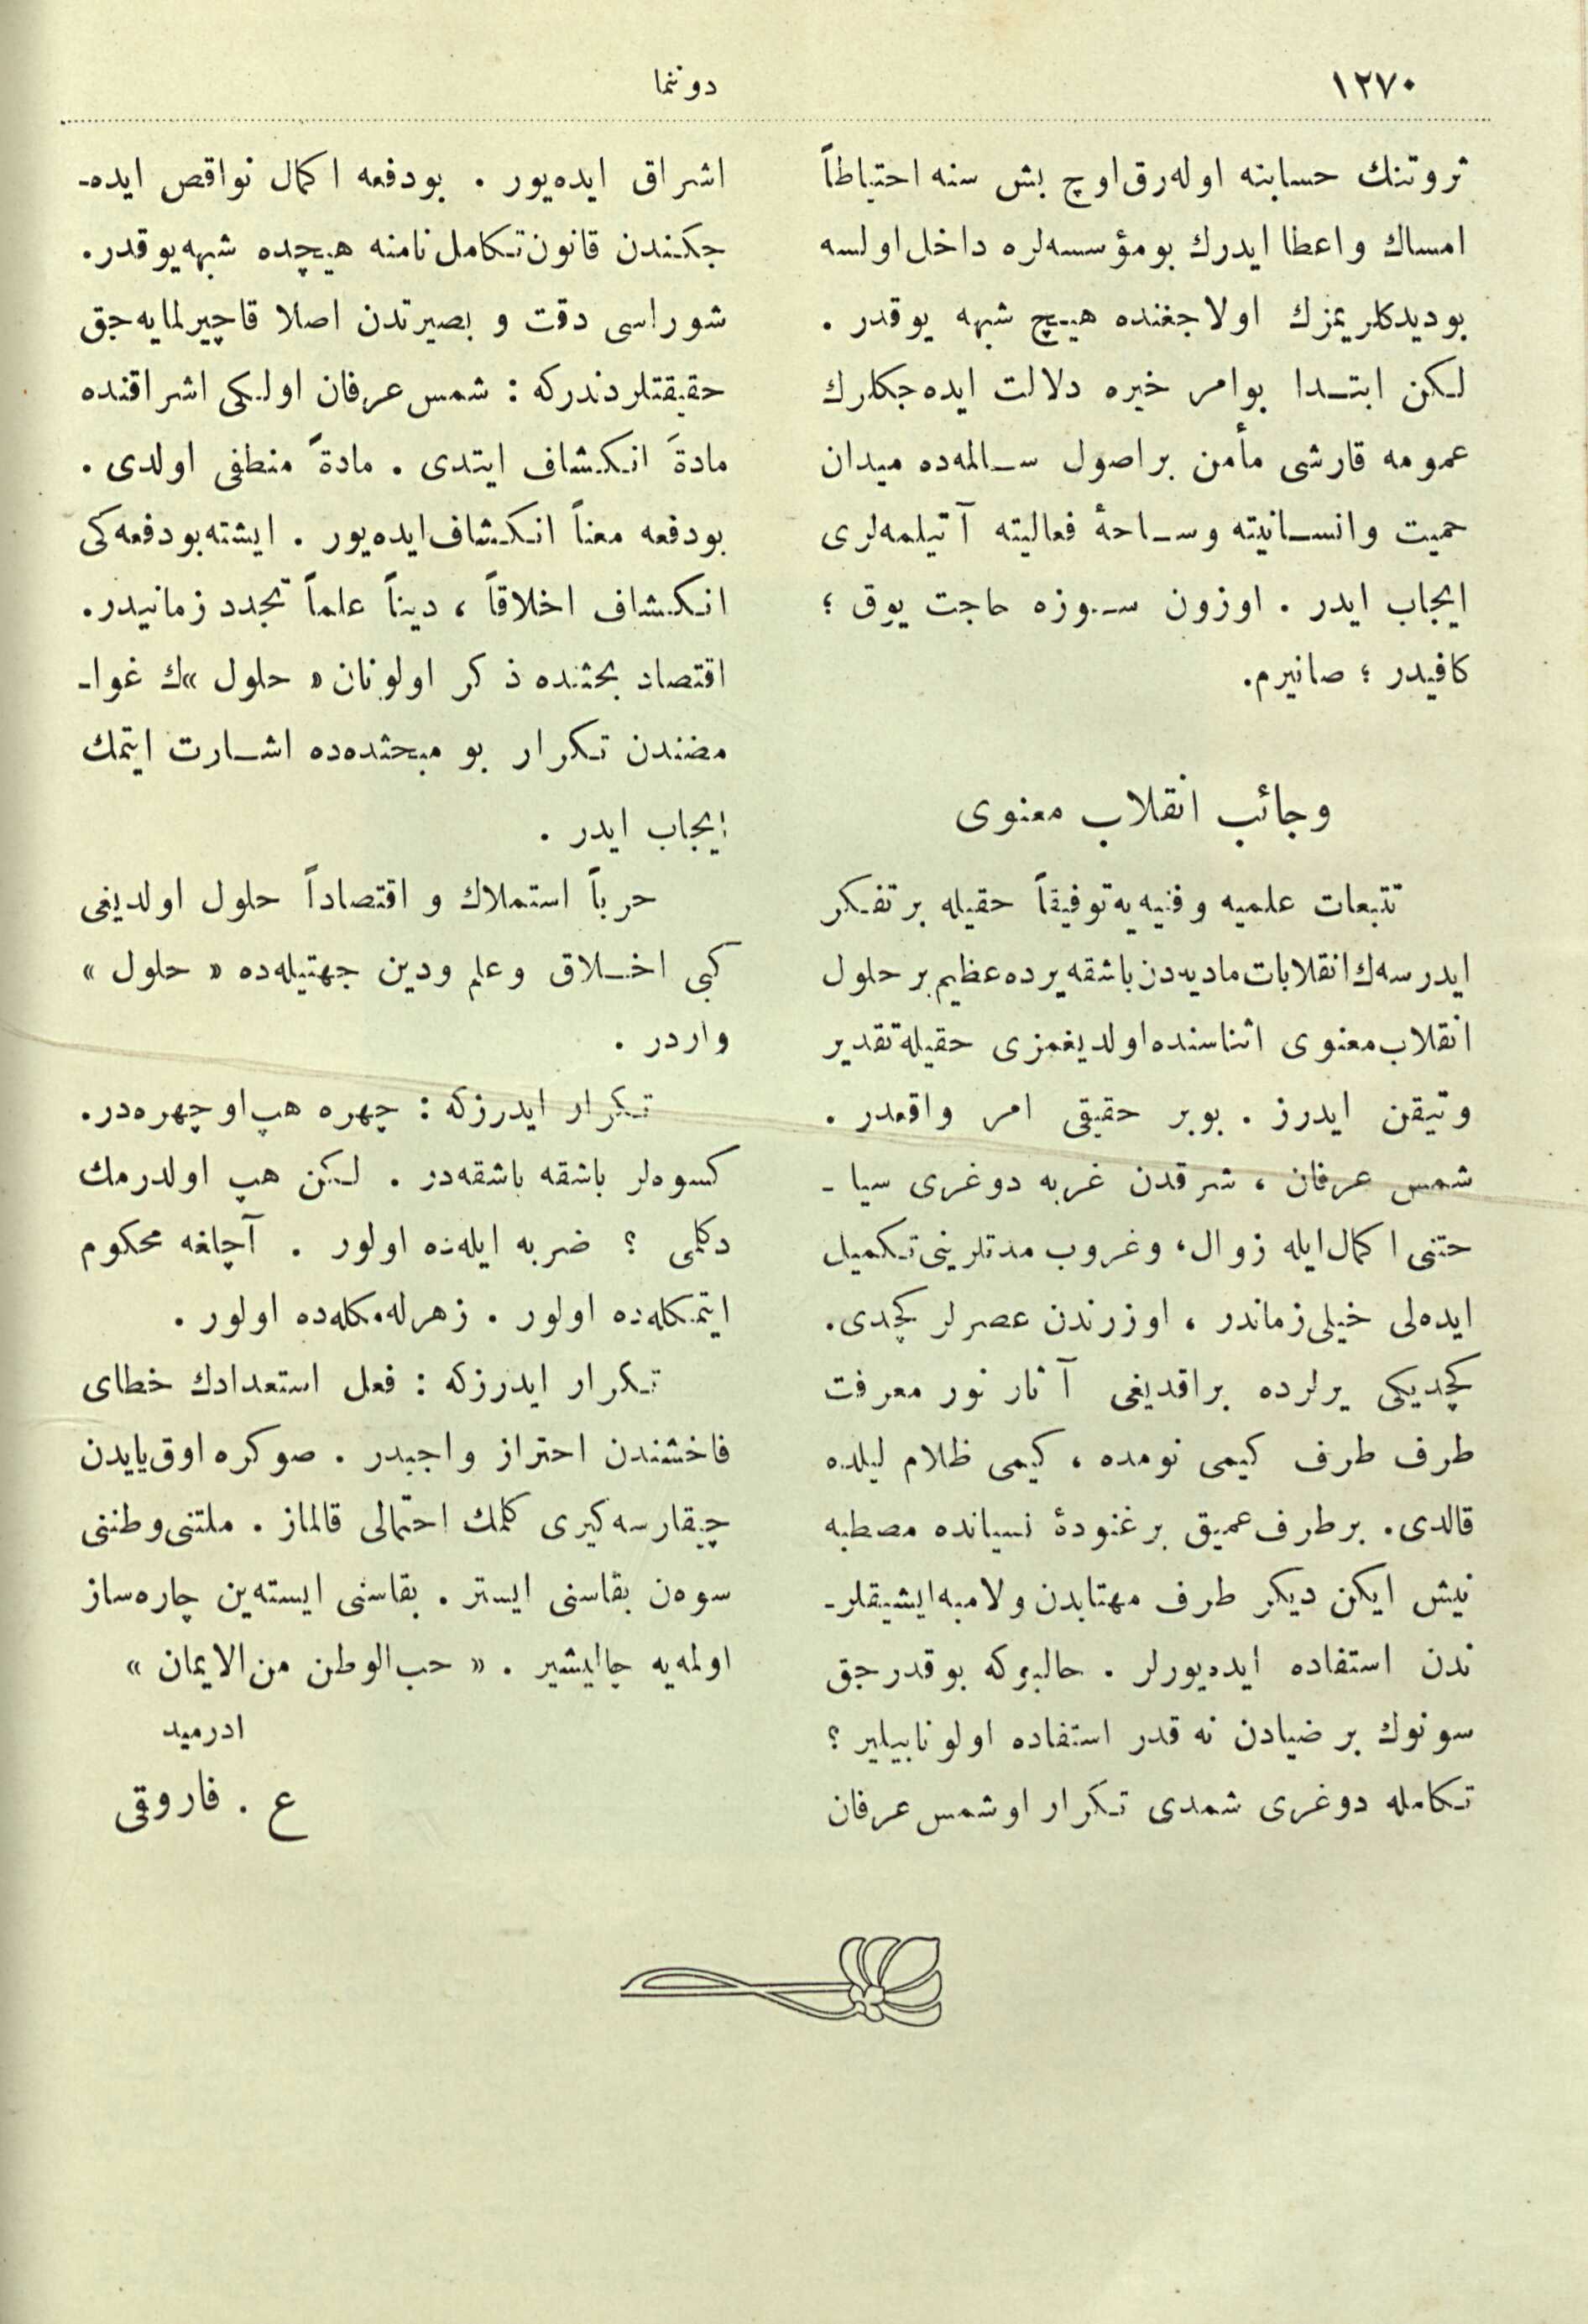 ١٢٧٠
دوننما
ثروتنك حسابنه اوله‌رق اوچ بش سنه احتیاطاً
امساك واعطا ایدرك بومؤسسه‌لره داخل اولسه
بودیدكلریمزك اولاجغنده هیچ شبهه یوقدر .
لكن ابتدا بوامر خیره دلالت ایده‌جكلرك
عمومه قارشی مأمن براصول سالمه‌ده میدان
حمیت وانسانیته وساحهٔ فعالیته آتیلمه‌لری
ایجاب ایدر . اوزون سوزه حاجت یوق ؛
كافیدر ؛ صانیرم.
وجائب انقلاب معنوی
تتبعات علمیه وفنیه‌یه توفیقاً حقیله برتفكر
ایدرسه‌ك انقلابات مادیه‌دن باشقه یرده عظیم بر حلول
انقلاب معنوی اثناسنده اولدیغمزی حقیله تقدیر
وتیقن ایدرز . بوبر حقیقی امر واقعدر .
شمس عرفان ، شرقدن غربه دوغری سیا ـ
حتنی اكمال ایله زوال، وغروب مدتلرینی تكمیل
ایده‌لی خیلی زماندر ، اوزرندن عصرلر كچدی.
كچدیكی یرلرده براقدیغی آثار نور معرفت
طرف طرف كیمی نومده ، كیمی ظلام لیلده
قالدی. برطرف عمیق برغنودهٔ نسیانده مصطبه
نیش ایكن دیكر طرف مهتابدن ولامبه ایشیقلرـ
ندن استفاده ایده‌یورلر . حالبوكه بوقدرجق
سونوك بر ضیادن نه قدر استفاده اولونابیلیر ؟
تكامله دوغری شمدی تكرار اوشمس عرفان
اشراق ایده‌یور . بودفعه اكمال نواقص ایده‌ـ
جكندن قانون تكامل نامنه هیچده شبهه یوقدر.
شوراسی دقت و بصیرتدن اصلا قاچیرلمایه‌جق
حقیقتلردندركه : شمس عرفان اولكی اشراقنده
مادةً انكشاف ایتدی . مادةً منطفی اولدی .
بودفعه معناً انكشاف ایده‌یور . ایشته بودفعه‌كی
انكشاف اخلاقاً ، دیناً علماً تجدد زمانیدر.
اقتصاد بحثنده ذكر اولونان « حلول »ك غواـ
مضندن تكرار بو مبحثده‌ده اشارت ایتمك
ایجاب ایدر .
حرباً استملاك و اقتصاداً حلول اولدیغی
كبی اخلاق وعلم ودین جهتیله‌ده « حلول »
واردر .
تكرار ایدرزكه : چهره هپ اوچهره‌در.
كسوه‌لر باشقه باشقه‌در . لكن هپ اولدرمك
دكلمی ؟ ضربه ایله‌ده اولور . آچلغه محكوم
ایتمكله‌ده اولور . زهرله‌مكله‌ده اولور .
تكرار ایدرزكه : فعل استعدادك خطای
فاخشندن احتراز واجبدر . صوكره اوق یایدن
چیقارسه كیری كلمك احتمالی قالماز . ملتنی وطننی
سوه‌ن بقاسنی ایستر . بقاسنی ایسته‌ین چاره‌ساز
اولمه‌یه چالیشیر . « حب الوطن من الایمان »
ادرمید
ع . فاروقی